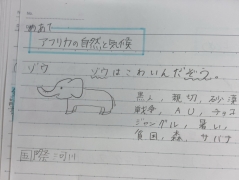 めあて
アフリカの自然と気候
ゾウ
ゾウはこわいんだぞう。
黒人 親切、砂漠
戦争、AU、チョコ
ジャングル、暑い、
貧困、森、サバナ
国際河川